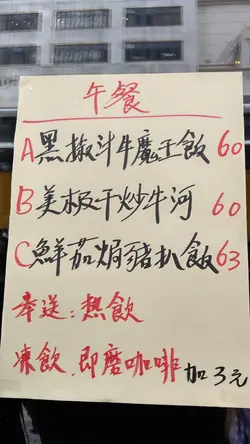 午餐
A黑椒斗牛魔王飯 60
B美极干炒牛河 60
C鮮茄焗豬扒飯 63
奉送：熱飲
凍飲．即磨咖啡 加3元